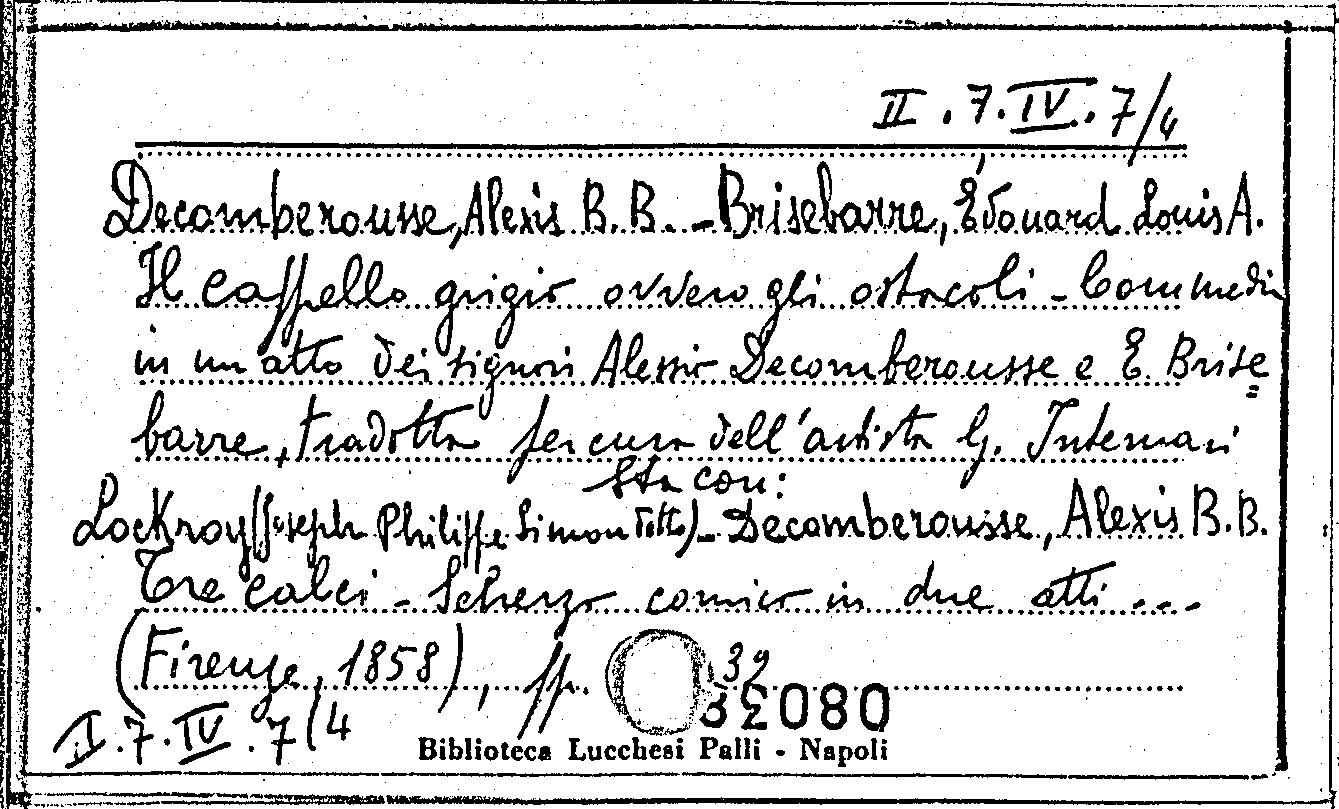 II . 7. IV. 7/4
Decomberousse, Alexis B. B. - Brisebarre, Édouard Louis A.
Il cappello grigio ovvero gli ostacoli - Commedia
in un atto dei signori Alessio Decomberousse e E. Brise=
barre, tradotta per cura dell'artista G. Internari
Sta con:
Lockroy (Joseph Philippe Simon detto) - Decomberousse, Alexis B. B.
Tre calci - Scherzo comico in due atti ...
(Firenze, 1858), pp. 39
32080
I . 7. IV . 7/4
Biblioteca Lucchesi Palli - Napoli